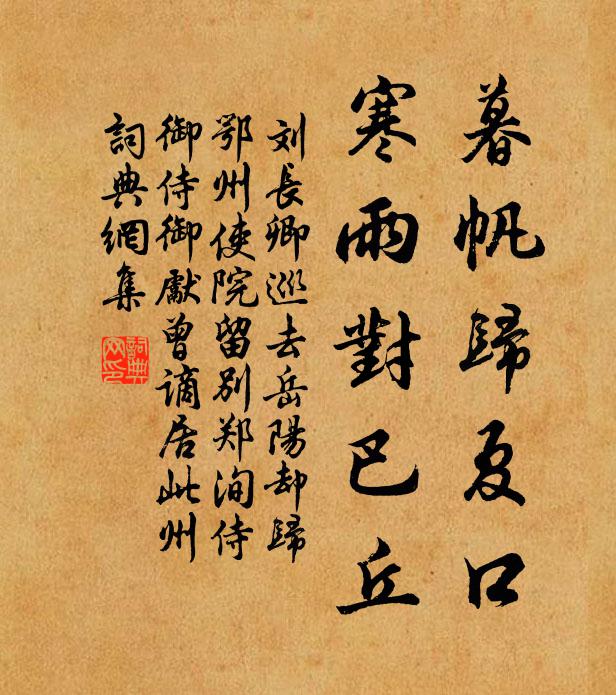 暮帆歸夏口
寒雨對巴丘
刘長卿巡去岳陽却歸
鄂州使院留别郑洵侍
御侍御獻曾謫居此州
詞典網集
詞典网印